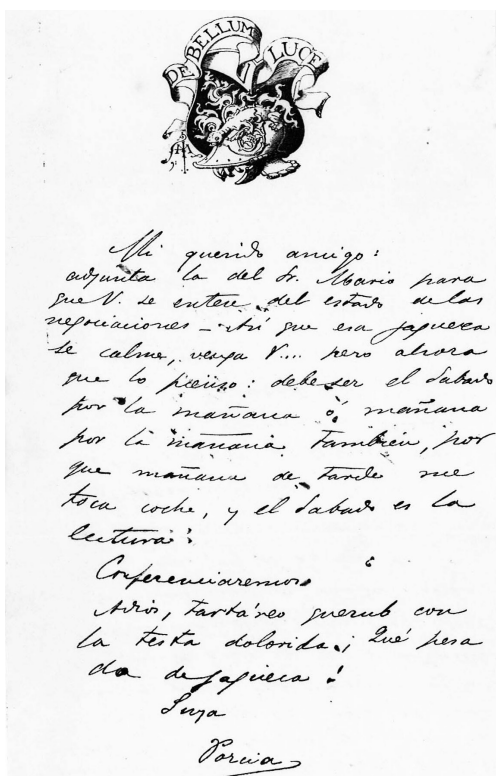 DE BELLUM LUCE
Mi querido amigo:
adjunta la del Sr. Mario para
que V. se entere del estado de las
negociaciones - Así que esa jaqueca
se calme, venga V.... pero ahora
que lo pienso: debe ser el Sabado
por la mañana ó mañana
por la mañana tambien, por
que mañana de tarde me
toca coche, y el Sabado es la
lectura.
Conferenciaremos
Adios, tartáreo querub con
la testa dolorida ¡Qué pesa
da de jaqueca!
Suya
Porcia